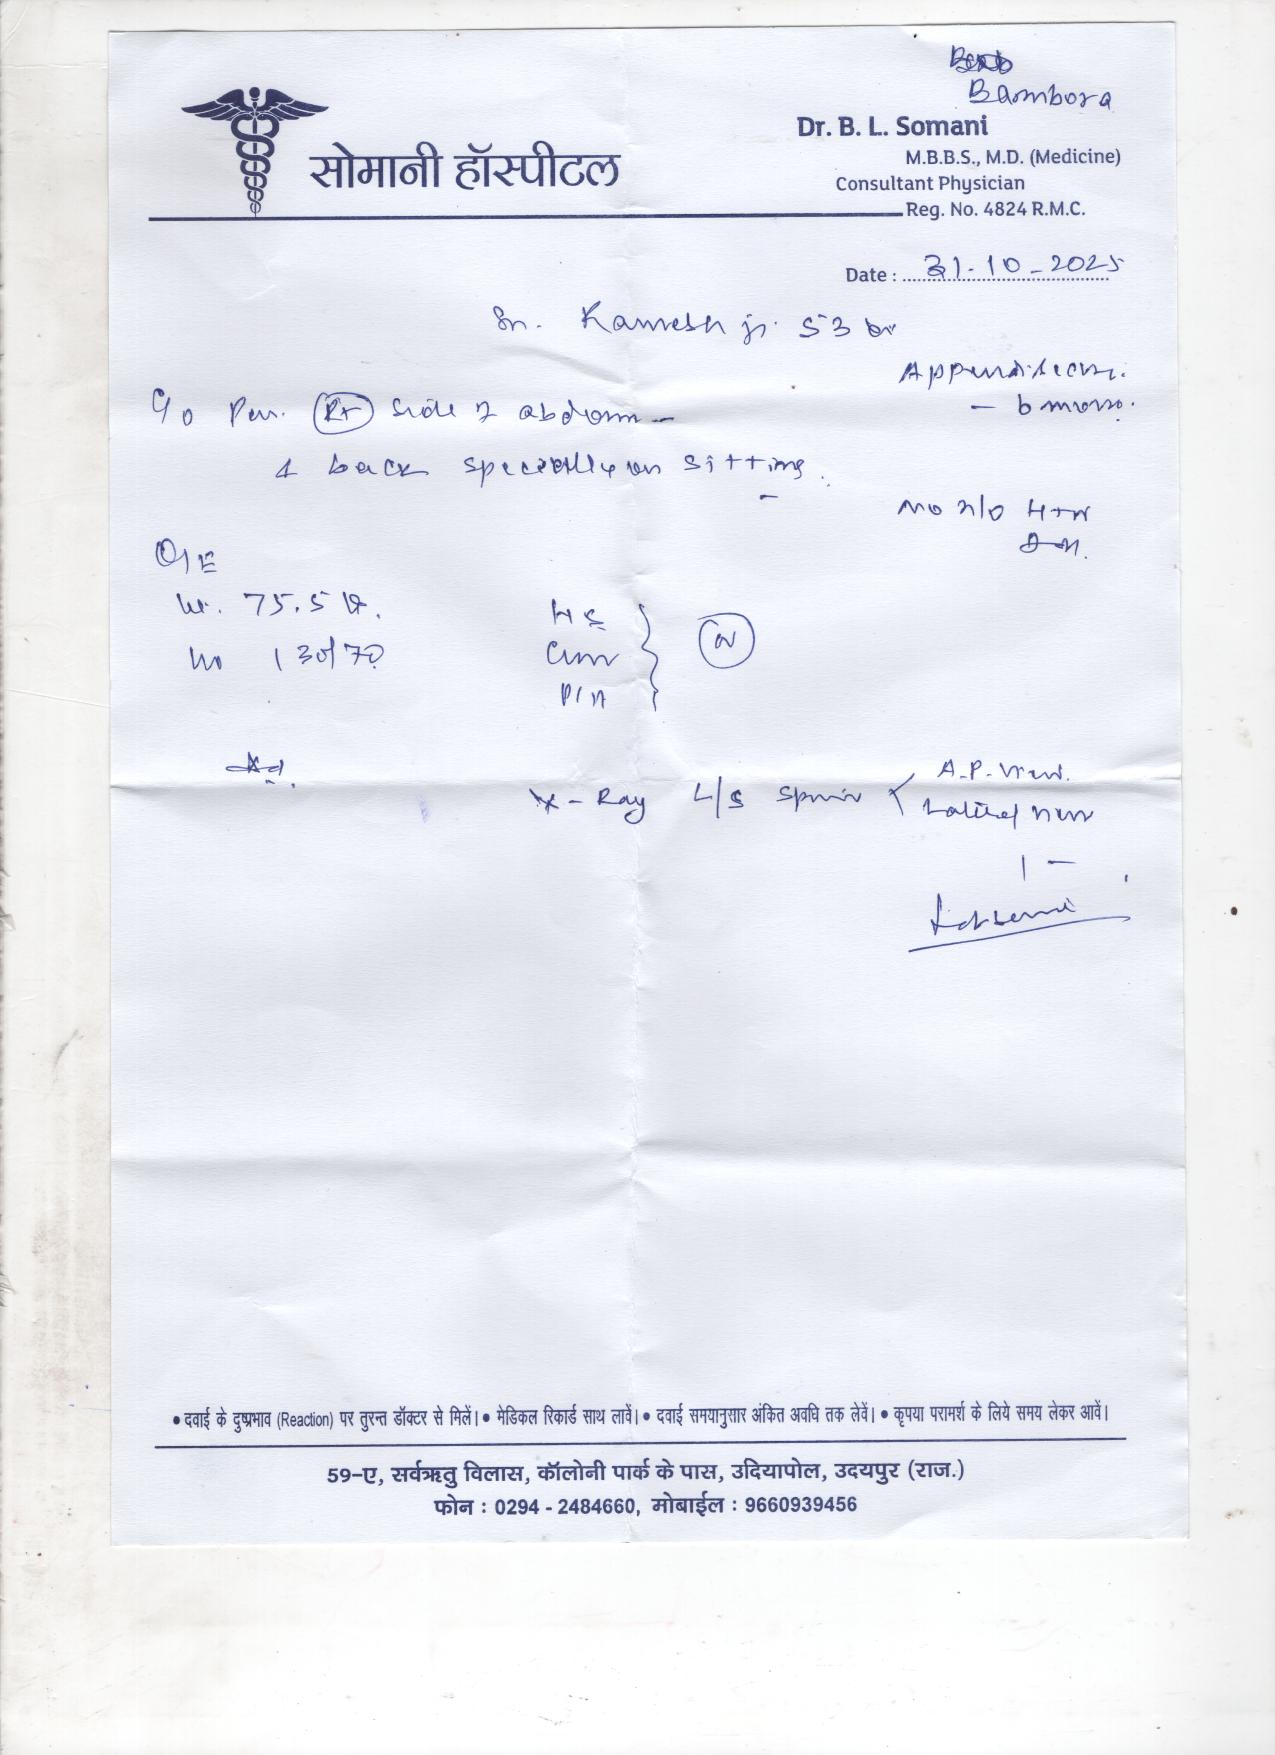 Bambora
सोमानी हॉस्पीटल
Dr. B. L. Somani
M.B.B.S., M.D. (Medicine)
Consultant Physician
Reg. No. 4824 R.M.C.
Date : 31-10-2025
Kamesh ji 53
C/o Pain Rt side of abdomen
& back specially on sitting
- 6 months.
No H/o HTN
DM.
O/E
Wt. 75.5
130/70
HS
Chest
P/A
N
X-Ray L/S Spine
A.P. view.
Lateral view
• दवाई के दुष्प्रभाव (Reaction) पर तुरन्त डॉक्टर से मिलें। • मेडिकल रिकार्ड साथ लावें। • दवाई समयानुसार अंकित अवधि तक लेवें। • कृपया परामर्श के लिये समय लेकर आवें।
59-ए, सर्वऋतु विलास, कॉलोनी पार्क के पास, उदियापोल, उदयपुर (राज.)
फोन : 0294 - 2484660, मोबाईल : 9660939456